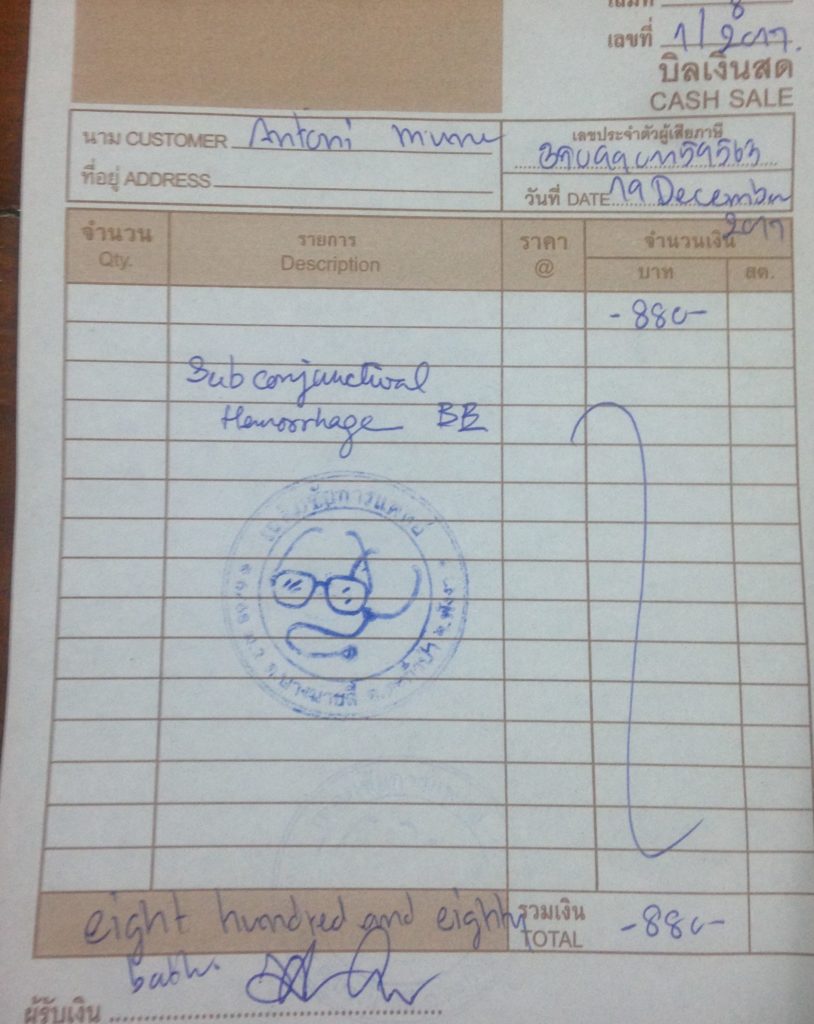 เล่มที่ 8
เลขที่ 1/2017.
บิลเงินสด
CASH SALE
นาม CUSTOMER Antoni
เลขประจำตัวผู้เสียภาษี
ที่อยู่ ADDRESS
วันที่ DATE 19 December
2017
จำนวน รายการ ราคา จำนวนเงิน
Qty. Description @ บาท สต.
-880-
Subconjunctival
Hemorrhage BE
eight hundred and eighty รวมเงิน
TOTAL -880-
ผู้รับเงิน